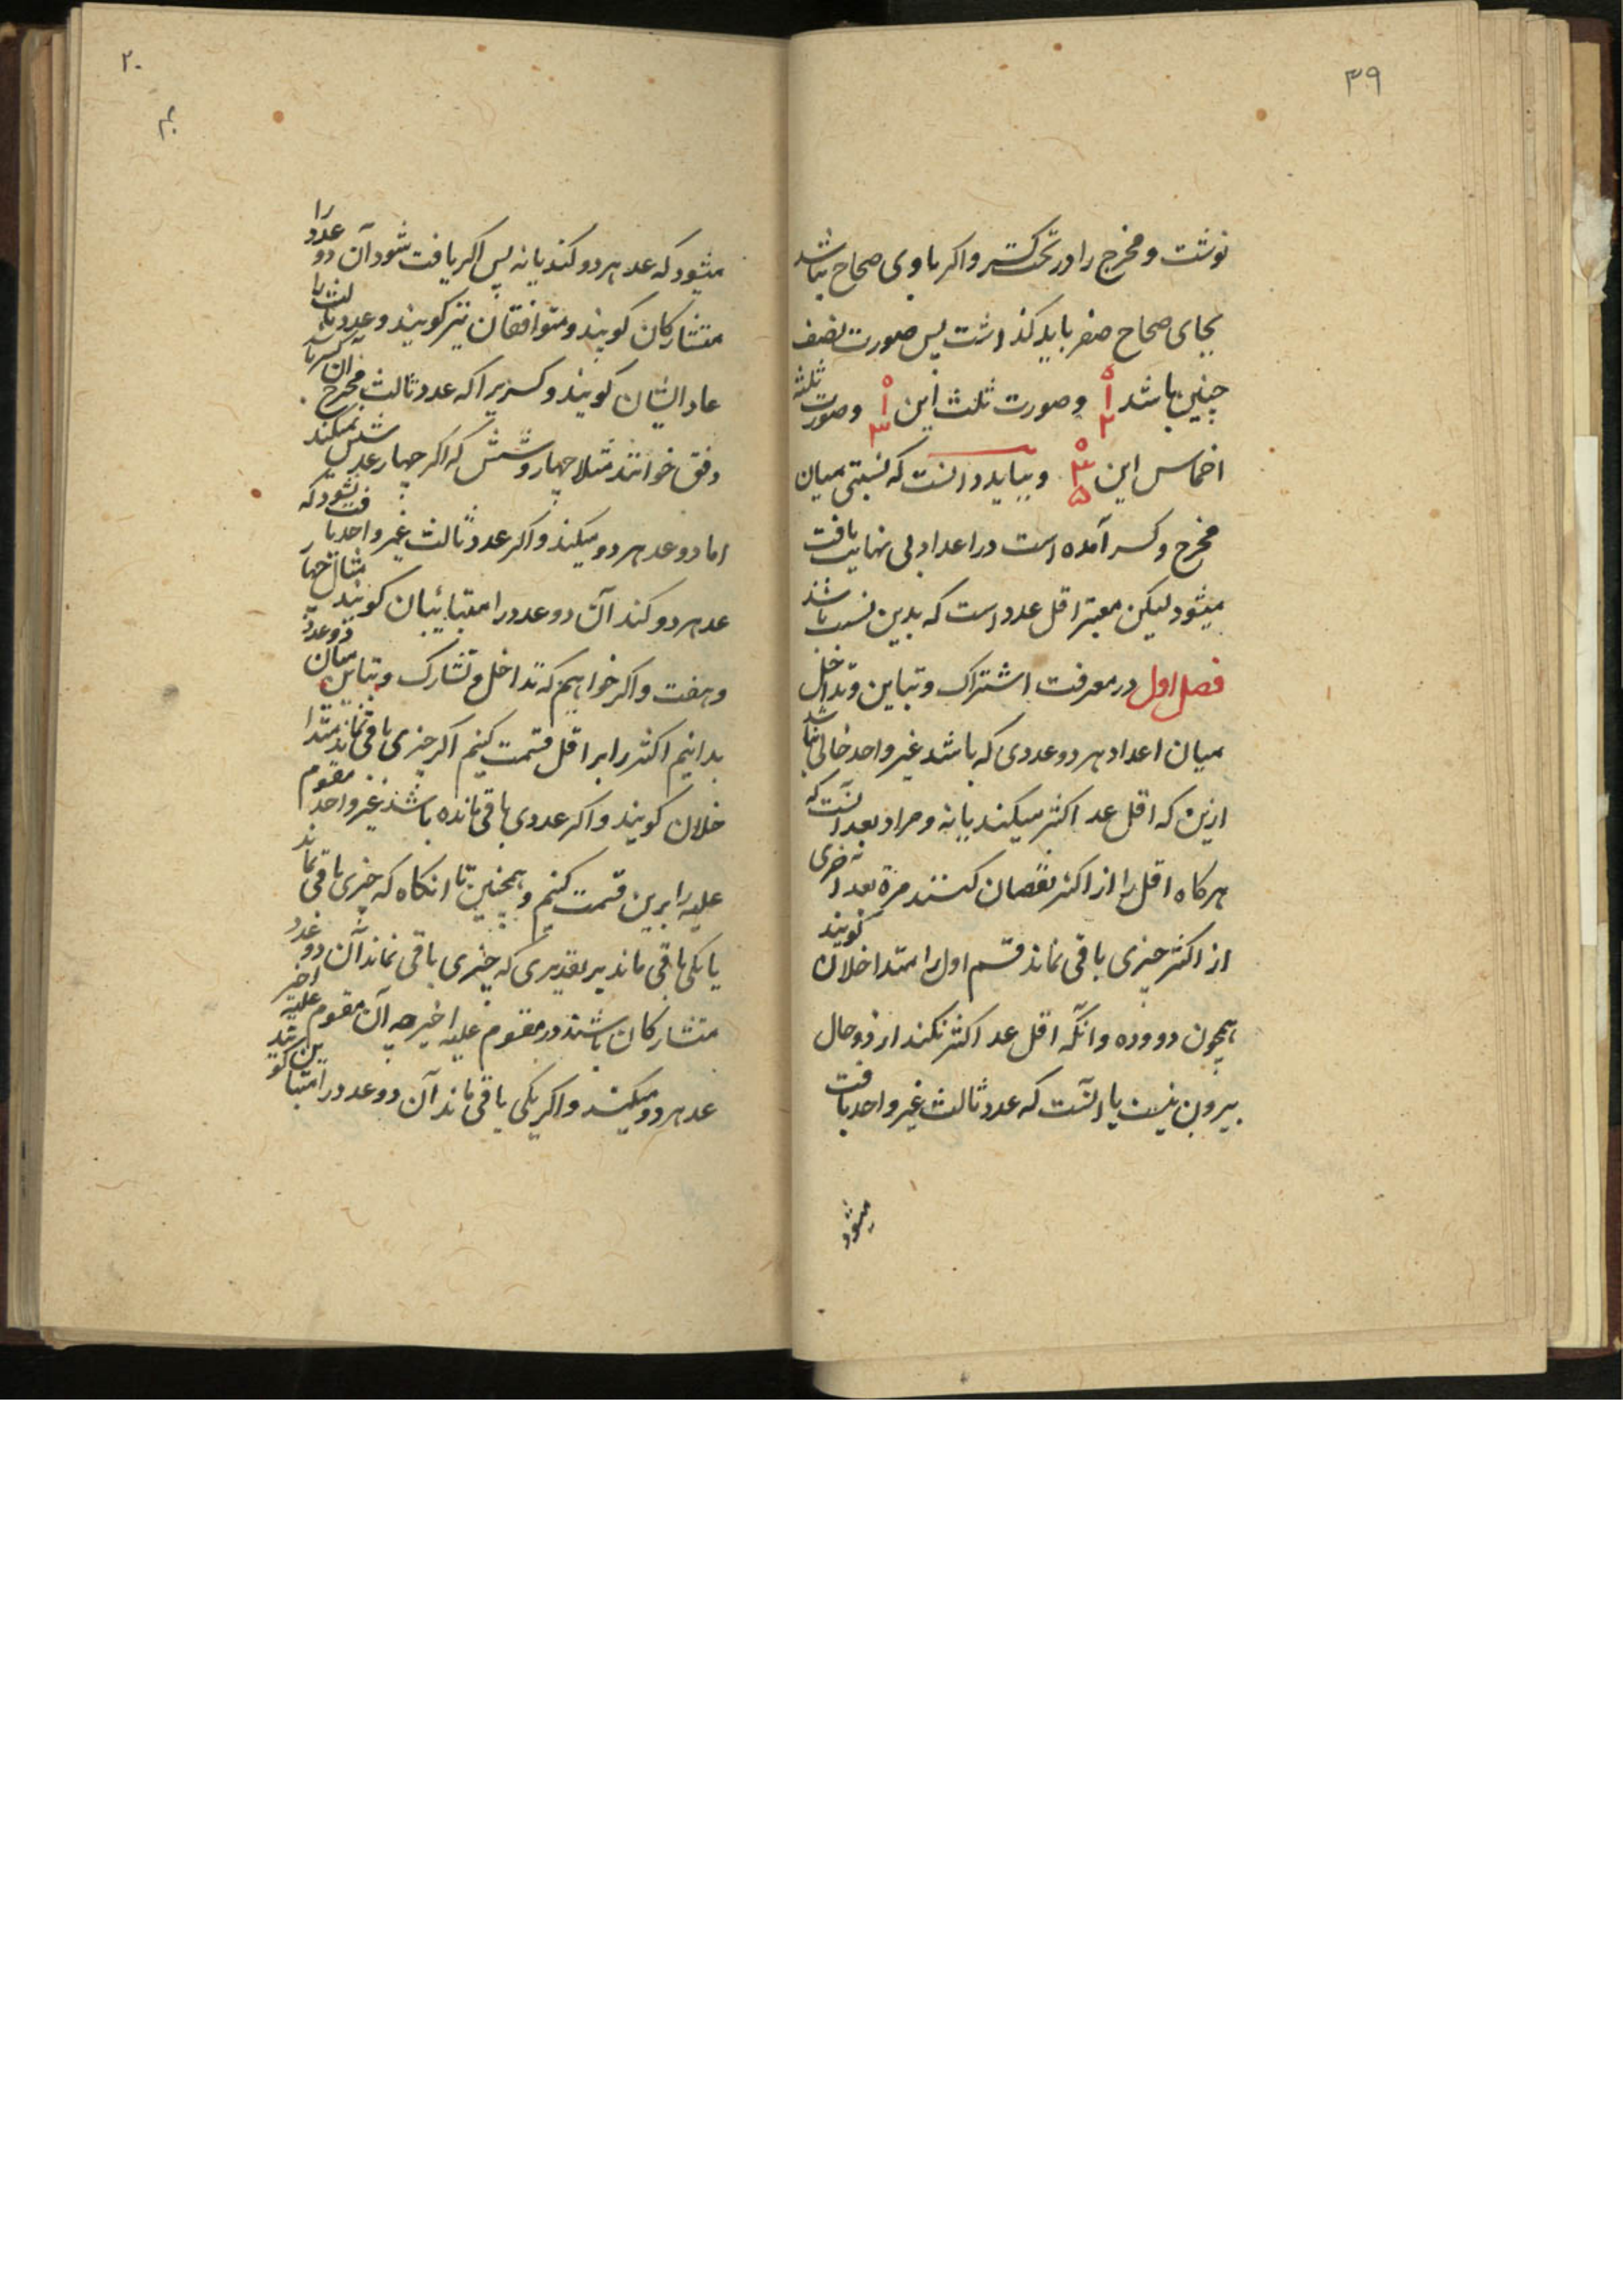 ۳۹
نوشت و مخرج را در تحت کسر و اکر با وی صحاح نباشد
بجای صحاح صفر باید کذاشت پس صورت نصف
چنین باشد ۰ ۱ ۲ وصورت ثلث این ۰ ۱ ۳ وصورت ثلثه
اخماس این ۰ ۳ ۵ و بباید دانست که نسبتی میان
مخرج و کسر آمده است در اعداد بی نهایت یافت
میشود لیکن معتبر اقل عدد است که بدین نسبت باشد
فصل اول در معرفت اشتراک و تباین و تداخل
میان اعداد هر دو عددی که باشد غیر واحد خالی نباشد
ازین که اقل عد اکثر میکند یا نه و مراد بعد آنست که
هرکاه اقل را از اکثر نقصان کنند مرة بعد اخری
از اکثر چیزی باقی نماند قسم اول را متداخلان کویند
همچون دو و ده و انکه اقل عد اکثر نکند از دو حال
بیرون نیست یا آنست که عدد ثالث غیر واحد یافت
میشود
۲۰
میشود که عد هر دو کند یا نه پس اکر یافت شود آن دو عدد را
متشارکان کویند و متوافقان نیز کویند و عدد ثالث را
عاد ایشان کویند و کسریرا که عدد ثالث مخرج آن کسر باشد
وفق خوانند مثلا چهار و شش که اکر چهار عد شش نمیکند
اما دو عد هر دو میکند و اکر عدد ثالث غیر واحد یافت نشود که
عد هر دو کند آن دو عدد را متباینان کویند مثال چهار
و هفت و اکر خواهیم که تداخل و تشارک و تباین میان دو عدد
بدانیم اکثر را بر اقل قسمت کنیم اکر چیزی باقی نماند متدا
خلان کویند و اکر عددی باقی مانده باشد غیر واحد مقسوم
علیه را برین قسمت کنیم و همچنین تا انکاه که چیزی باقی نماند
یا یکی باقی ماند بر تقدیری که چیزی باقی نماند آن دو عدد
متشارکان باشند در مقسوم علیه اخیر چه آن مقسوم علیه اخیر
عد هر دو میکند و اکر یکی باقی ماند آن دو عدد را متباین کویند